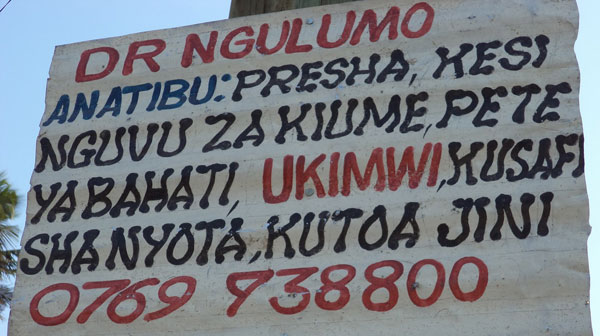 DR NGULUMO
ANATIBU: PRESHA, KESI
NGUVU ZA KIUME, PETE
YA BAHATI, UKIMWI, KUSAFI
SHA NYOTA, KUTOA JINI
0769 938800